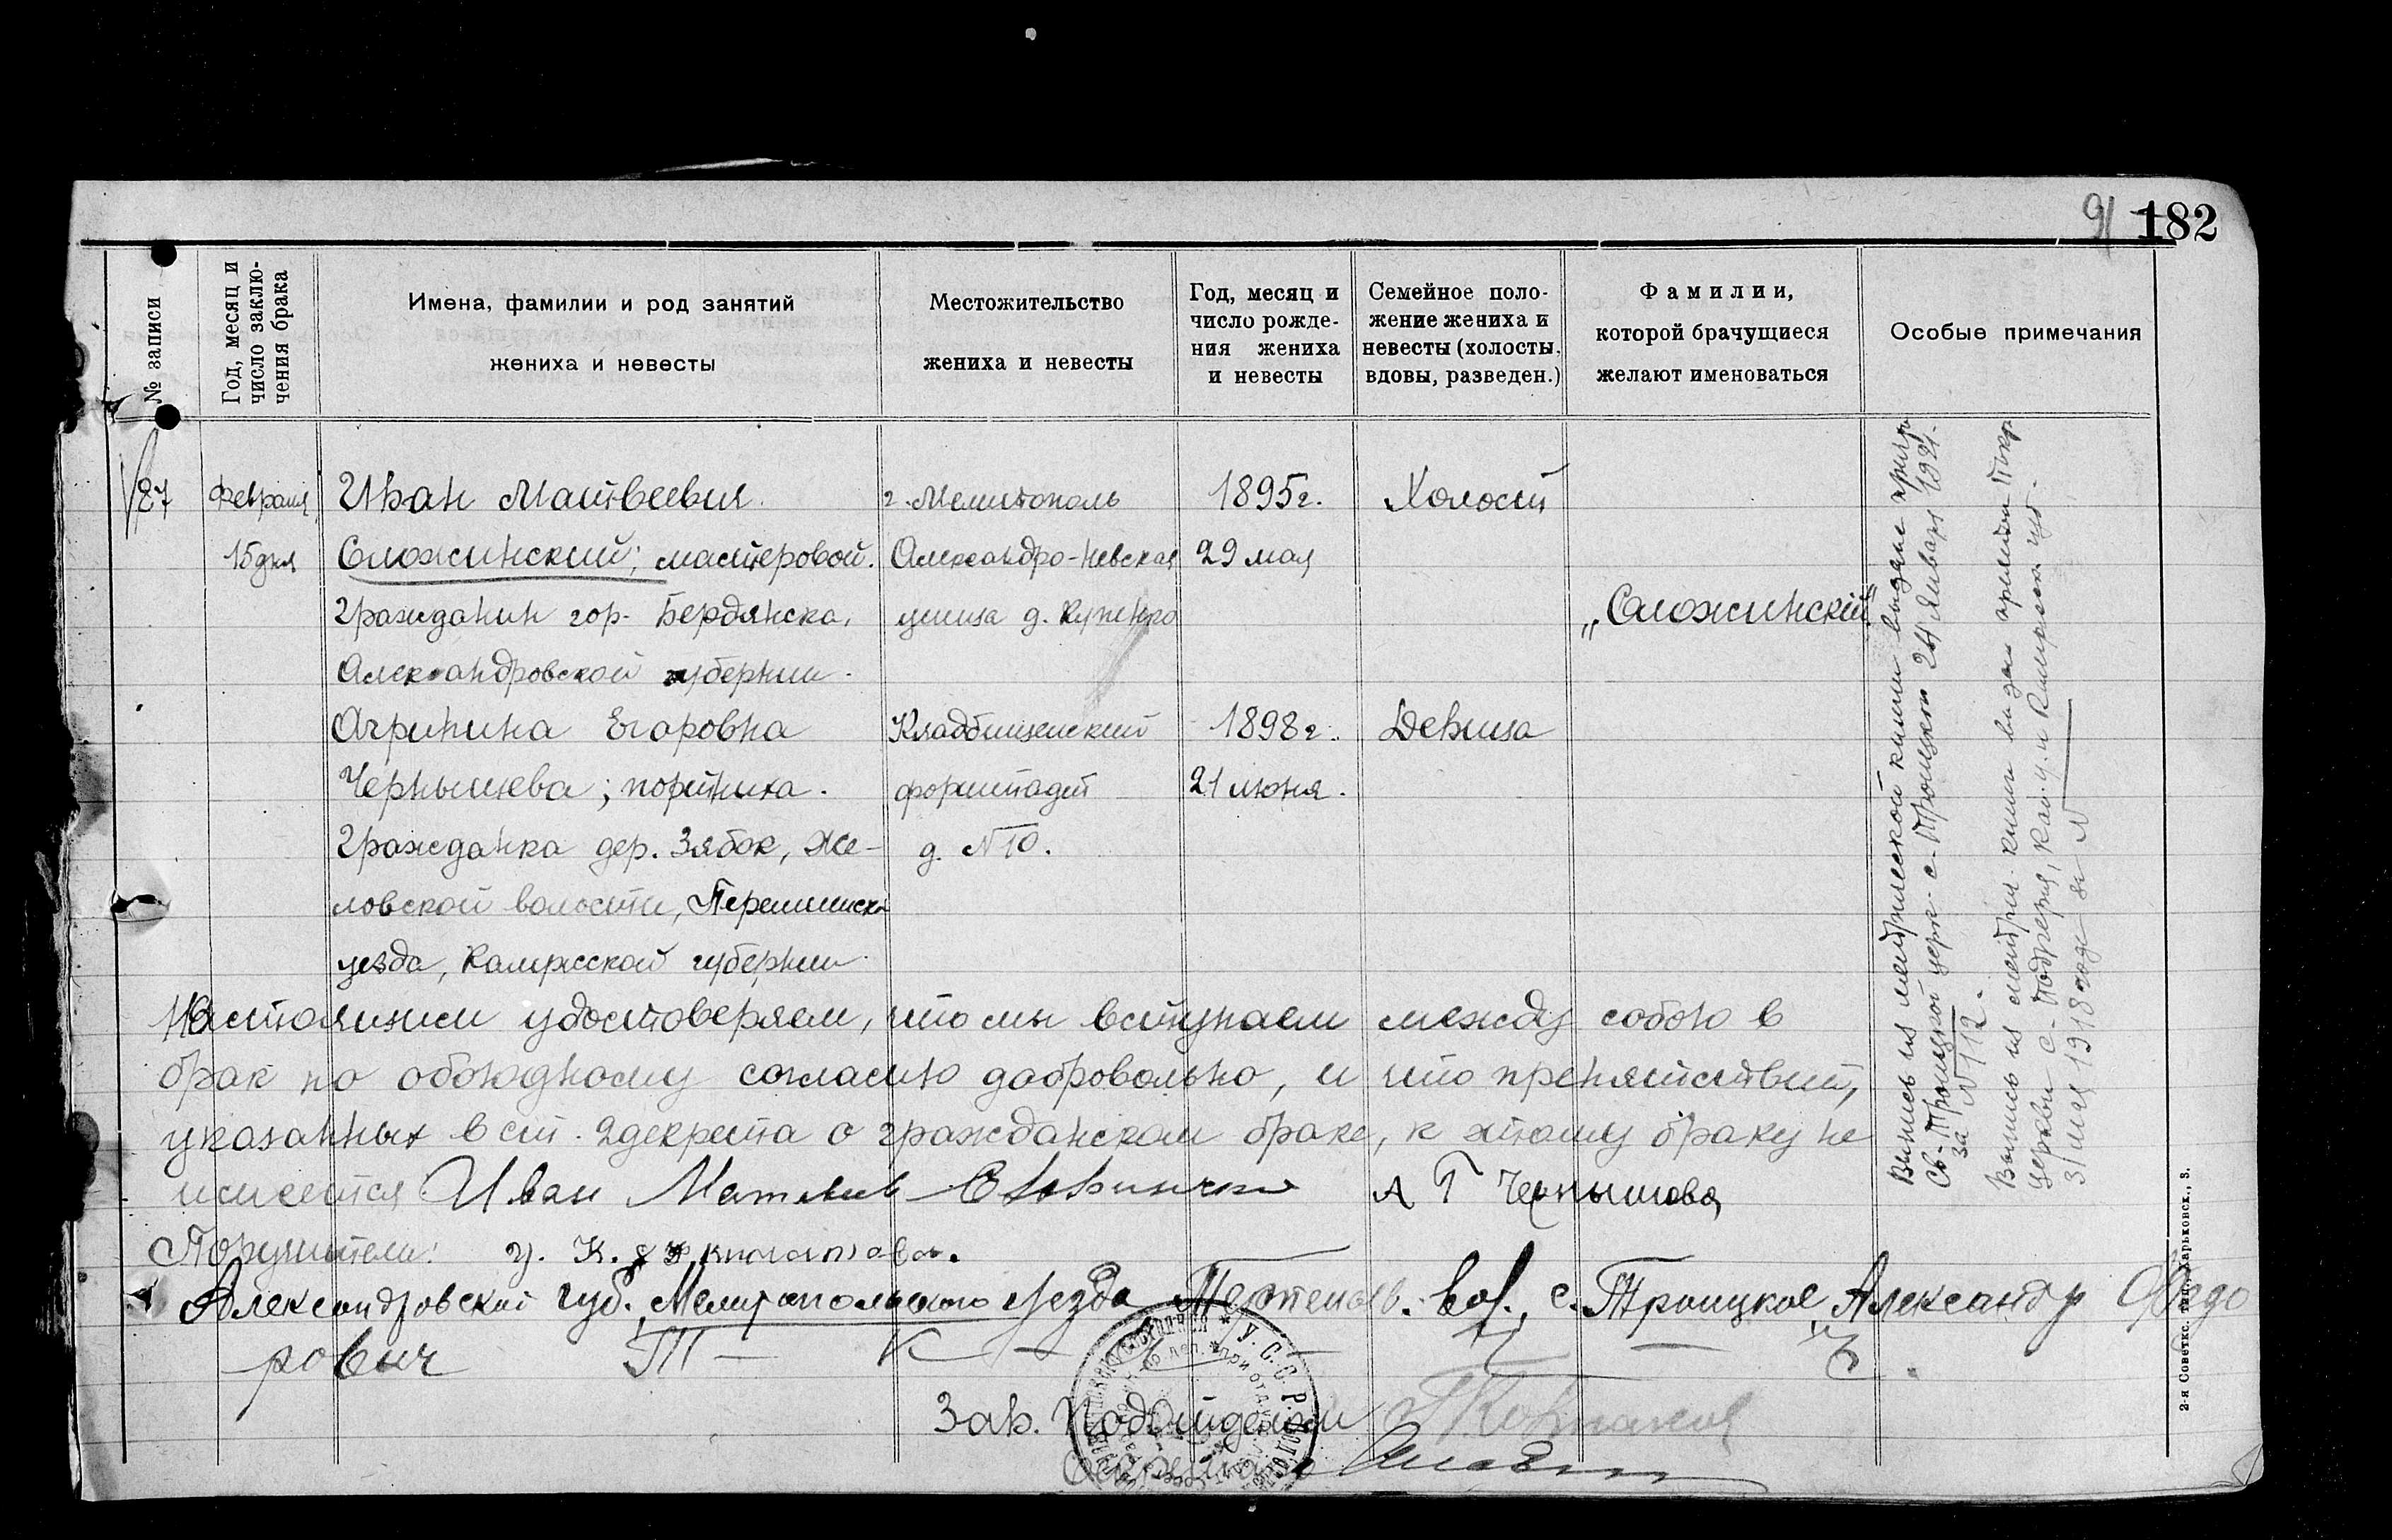 91 182
№ записи
Год, месяц и
число заклю-
чения брака
Имена, фамилии и род занятий
жениха и невесты
Местожительство
жениха и невесты
Год, месяц и
число рожде-
ния жениха
и невесты
Семейное поло-
жение жениха и
невесты (холосты,
вдовы, разведен.)
Фамилии,
которой брачущиеся
желают именоваться
Особые примечания
87
Февраля
15 дня
Иван Матвеевич
Сложинский; мастеровой.
Гражданин гор. Бердянска,
Александровской губернии.
г. Мелитополь
Александро-Невская
улица д.
1895 г.
29 мая
Холост
„Сложинский"
Агрипина Егоровна
Чернышева; портниха.
Гражданка дер. Зябок, Же-
ловской волости, Перемышск.
уезда, Калужской губернии.
Кладбищенский
форштадт
д. № 10.
1898 г.
21 июня.
Девица
Выпись из метрической книги выдана
Св.-Троицкой церк. с. Троицкого 24 января 1921.
за № 112.
Выпись из метрич. книги
церкви с.
1918 года за №
Настоящим удостоверяем, что мы вступаем между собою в
брак по обоюдному согласию добровольно, и что препятствий,
указанных в ст. 2 декрета о гражданском браке, к этому браку не
имеется Иван Матвеев А Г Чернышова
Поручители: г. К.
Александровской губ. Мелитопольского уезда вол., с. Троицкое, Александр Федо
рович
Зав. Подотделом
Секретарь
У.С.С.Р.
2-я Советск. тип., Харьковск., 3.